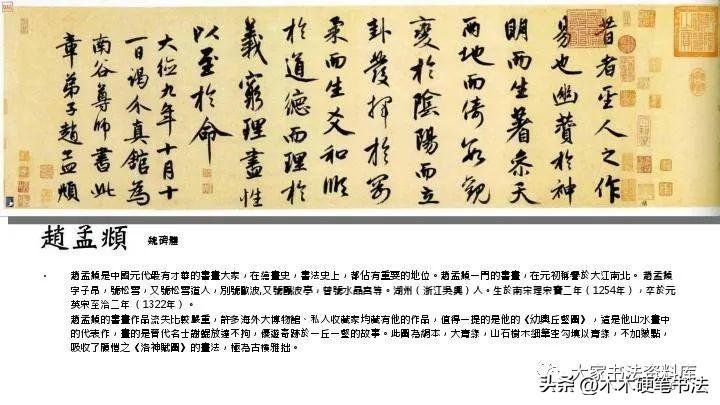 昔者聖人之作
易也幽贊於神
明而生蓍參天
兩地而倚數觀
變於陰陽而立
卦發揮於剛
柔而生爻和順
於道德而理於
義窮理盡性
以至於命
大德九年十月十
一日謁介真館為
南谷尊師書此
章弟子趙孟頫
趙孟頫 魏碑體
• 趙孟頫是中國元代最有才華的書畫大家，在繪畫史，書法史上，都佔有重要的地位。趙孟頫一門的書畫，在元初稱譽於大江南北。趙孟頫
字子昂，號松雪，又號松雪道人，別號歐波，又號鷗波亭，曾號水晶宮等。湖州（浙江吳興）人。生於南宋理宗寶二年（1254年），卒於元
英宗至治二年（1322年）。
趙孟頫的書畫作品流失比較嚴重，許多海外大博物館、私人收藏家均藏有他的作品，值得一提的是他的《幼輿丘壑圖》，這是他山水畫中
的代表作，畫的是晉代名士謝鯤放達不拘，優遊奇跡於一丘一壑的故事。此圖為絹本，大青綠，山石樹木細筆空勾填以青綠，不加皴點，
吸收了顧愷之《洛神賦圖》的畫法，極為古樸雅拙。
大家书法资料库
头条 @木木硬笔书法